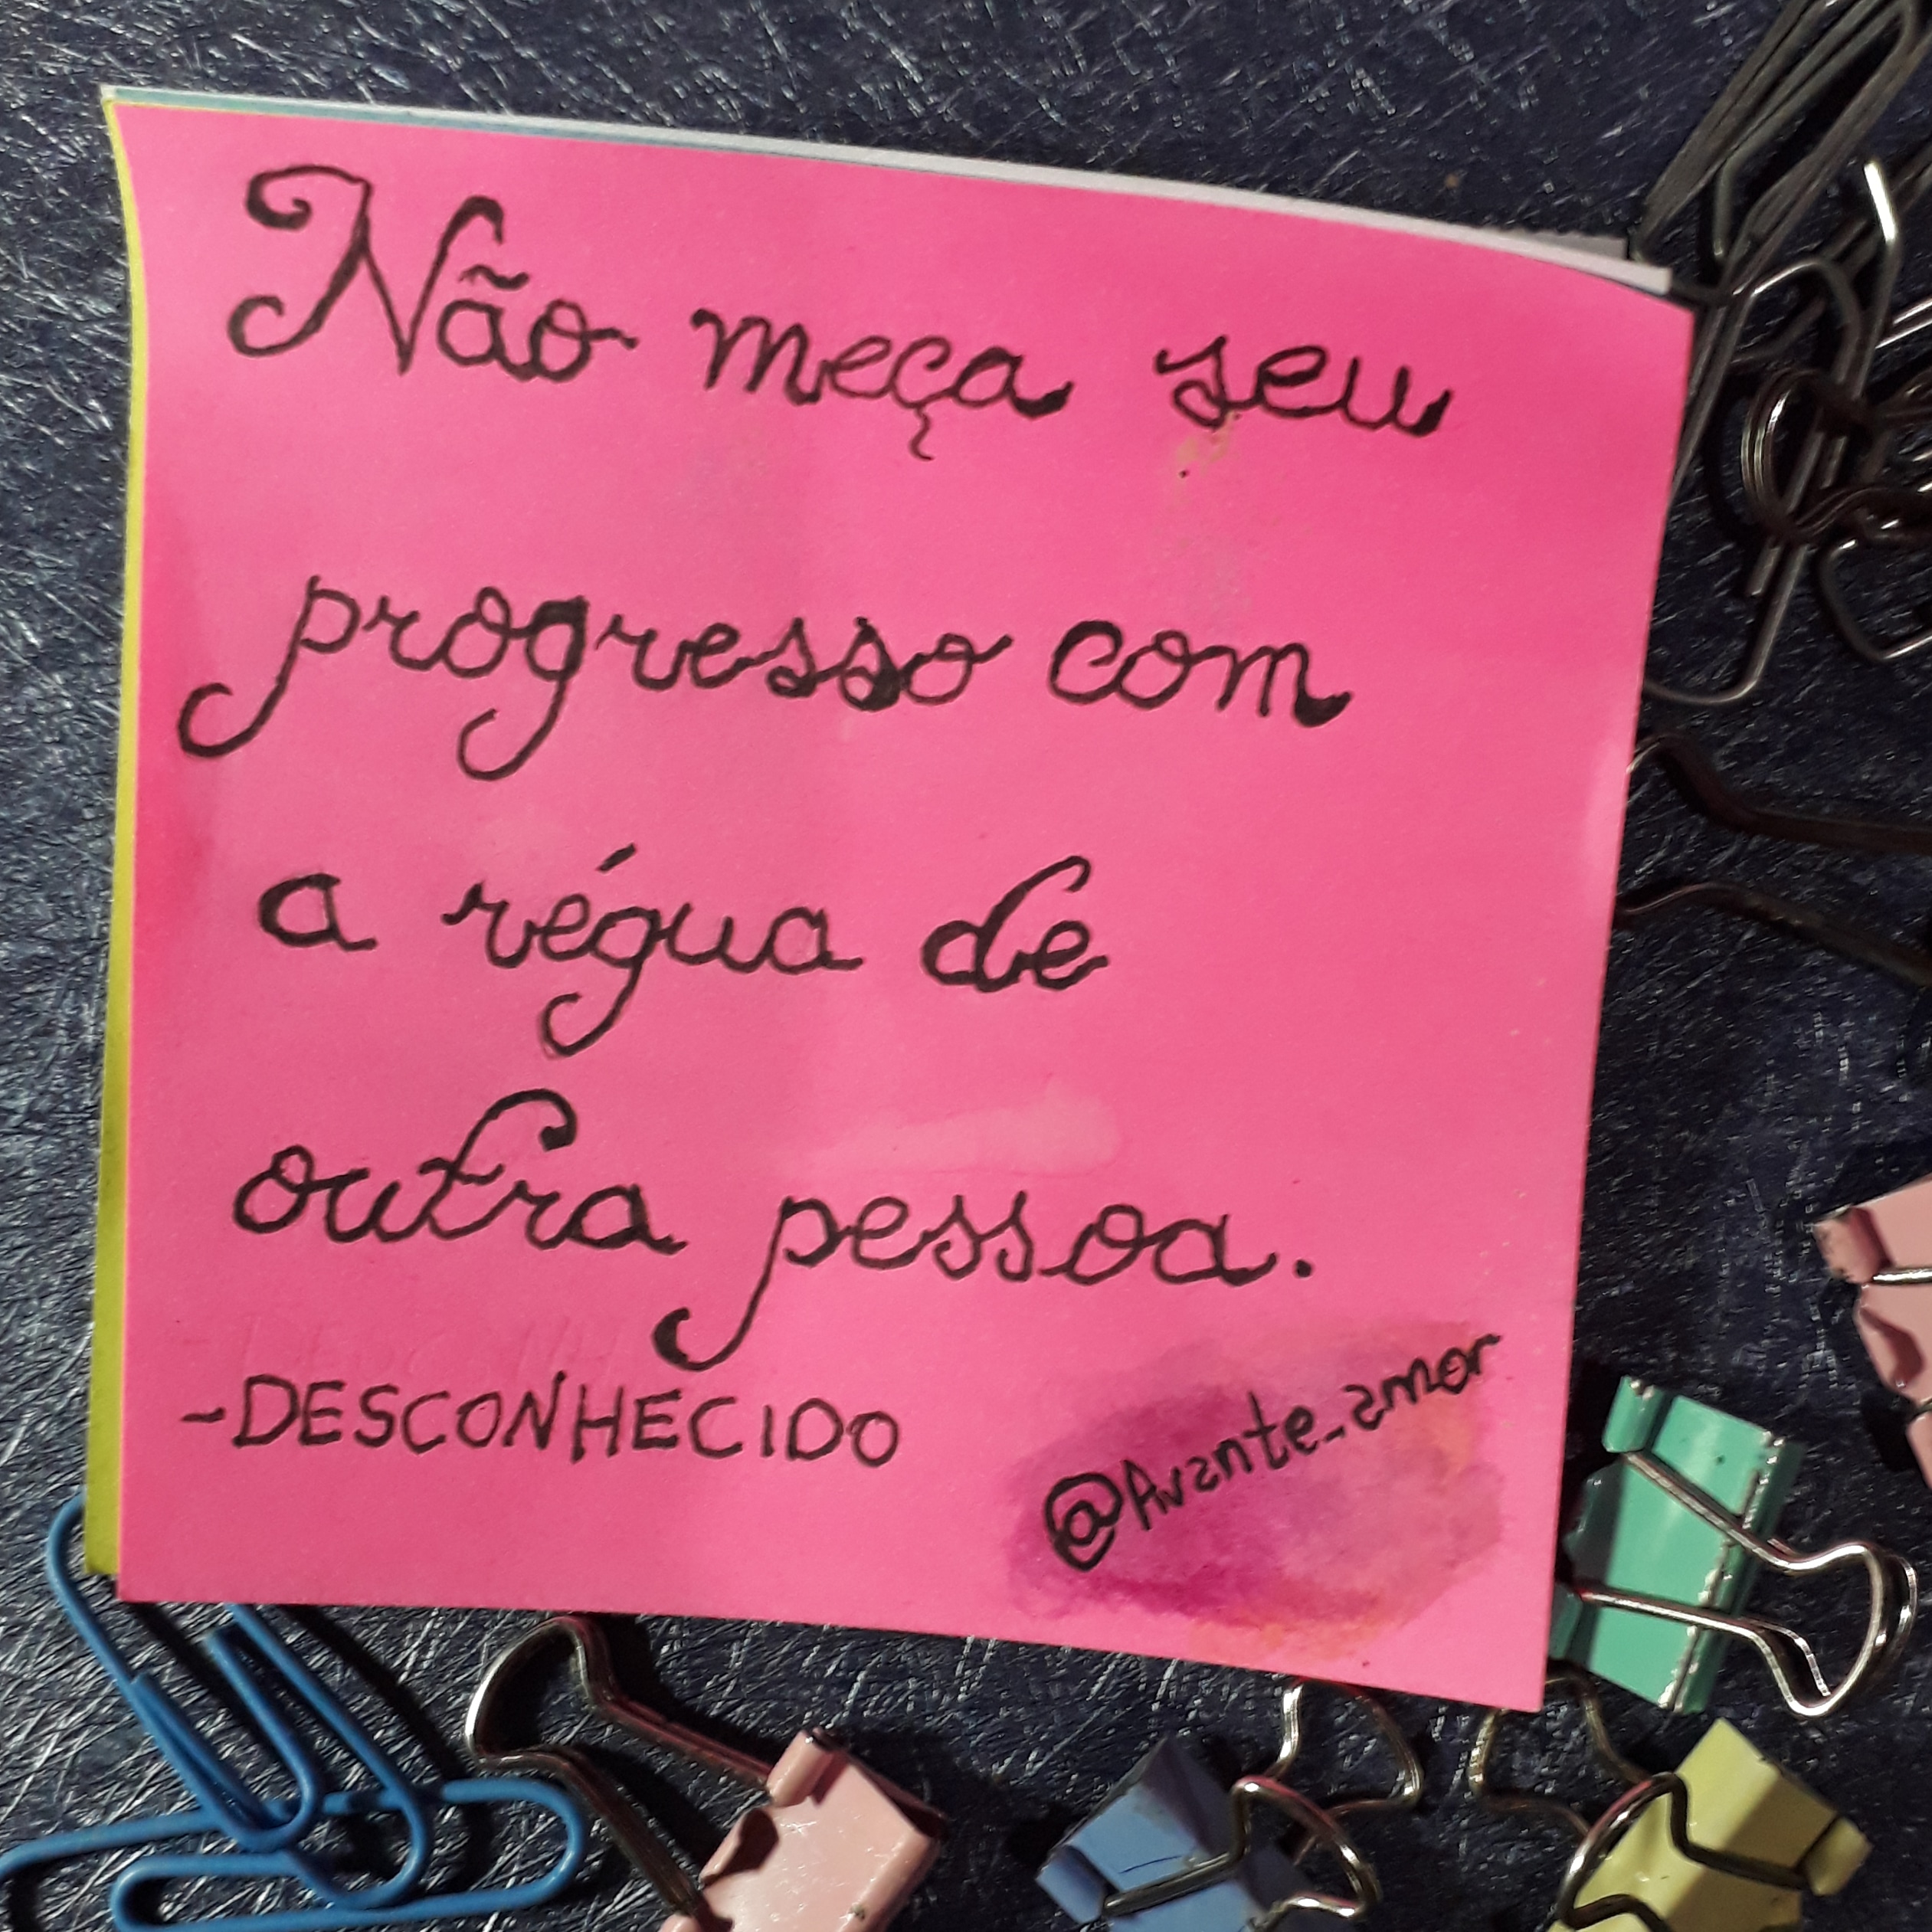 Não meça seu
progresso com
a régua de
outra pessoa.
-DESCONHECIDO
@Avante_amor